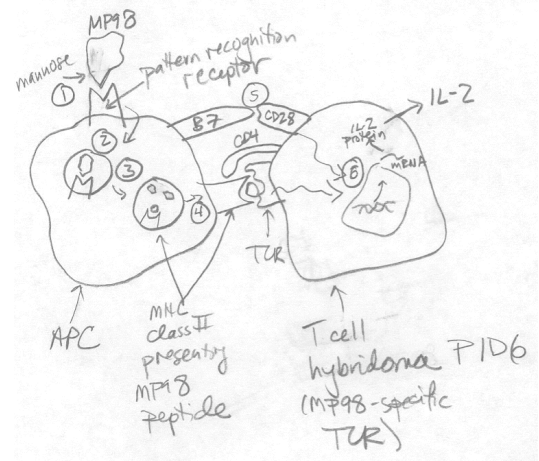 MP98
mannose
pattern recognition
receptor
1
2
3
4
5
B7
CD28
CD4
IL-2
IL2
protein
mRNA
6
TCR
APC
MHC
class II
presenting
MP98
peptide
T cell
hybridoma P1D6
(MP98-specific
TCR)